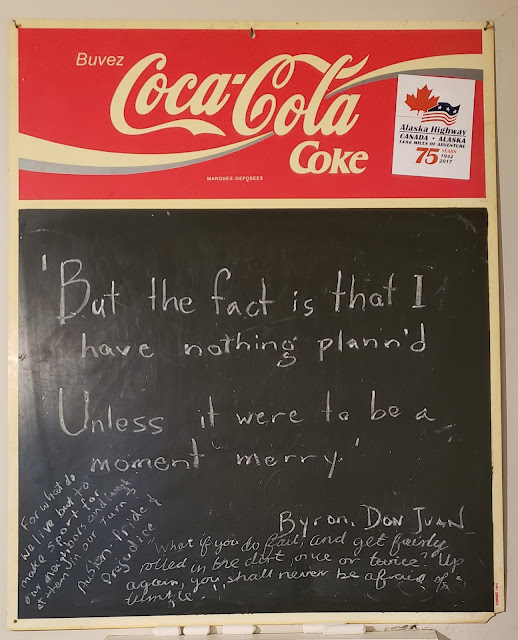 Buvez
Coca-Cola
Coke
MARQUES DEPOSEES
Alaska Highway
CANADA • ALASKA
1488 MILES OF ADVENTURE
75 YEARS
1942
2017
'But the fact is that I
have nothing plann'd
Unless it were to be a
moment merry.'
Byron, DON JUAN
For what do
we live but to
make sport for
our neighbors and laugh
at them in our turn?
Austen: Pride &
Prejudice
"What if you do fail, and get fairly
rolled in the dirt once or twice? Up
again, you shall never be afraid of a
tumble."